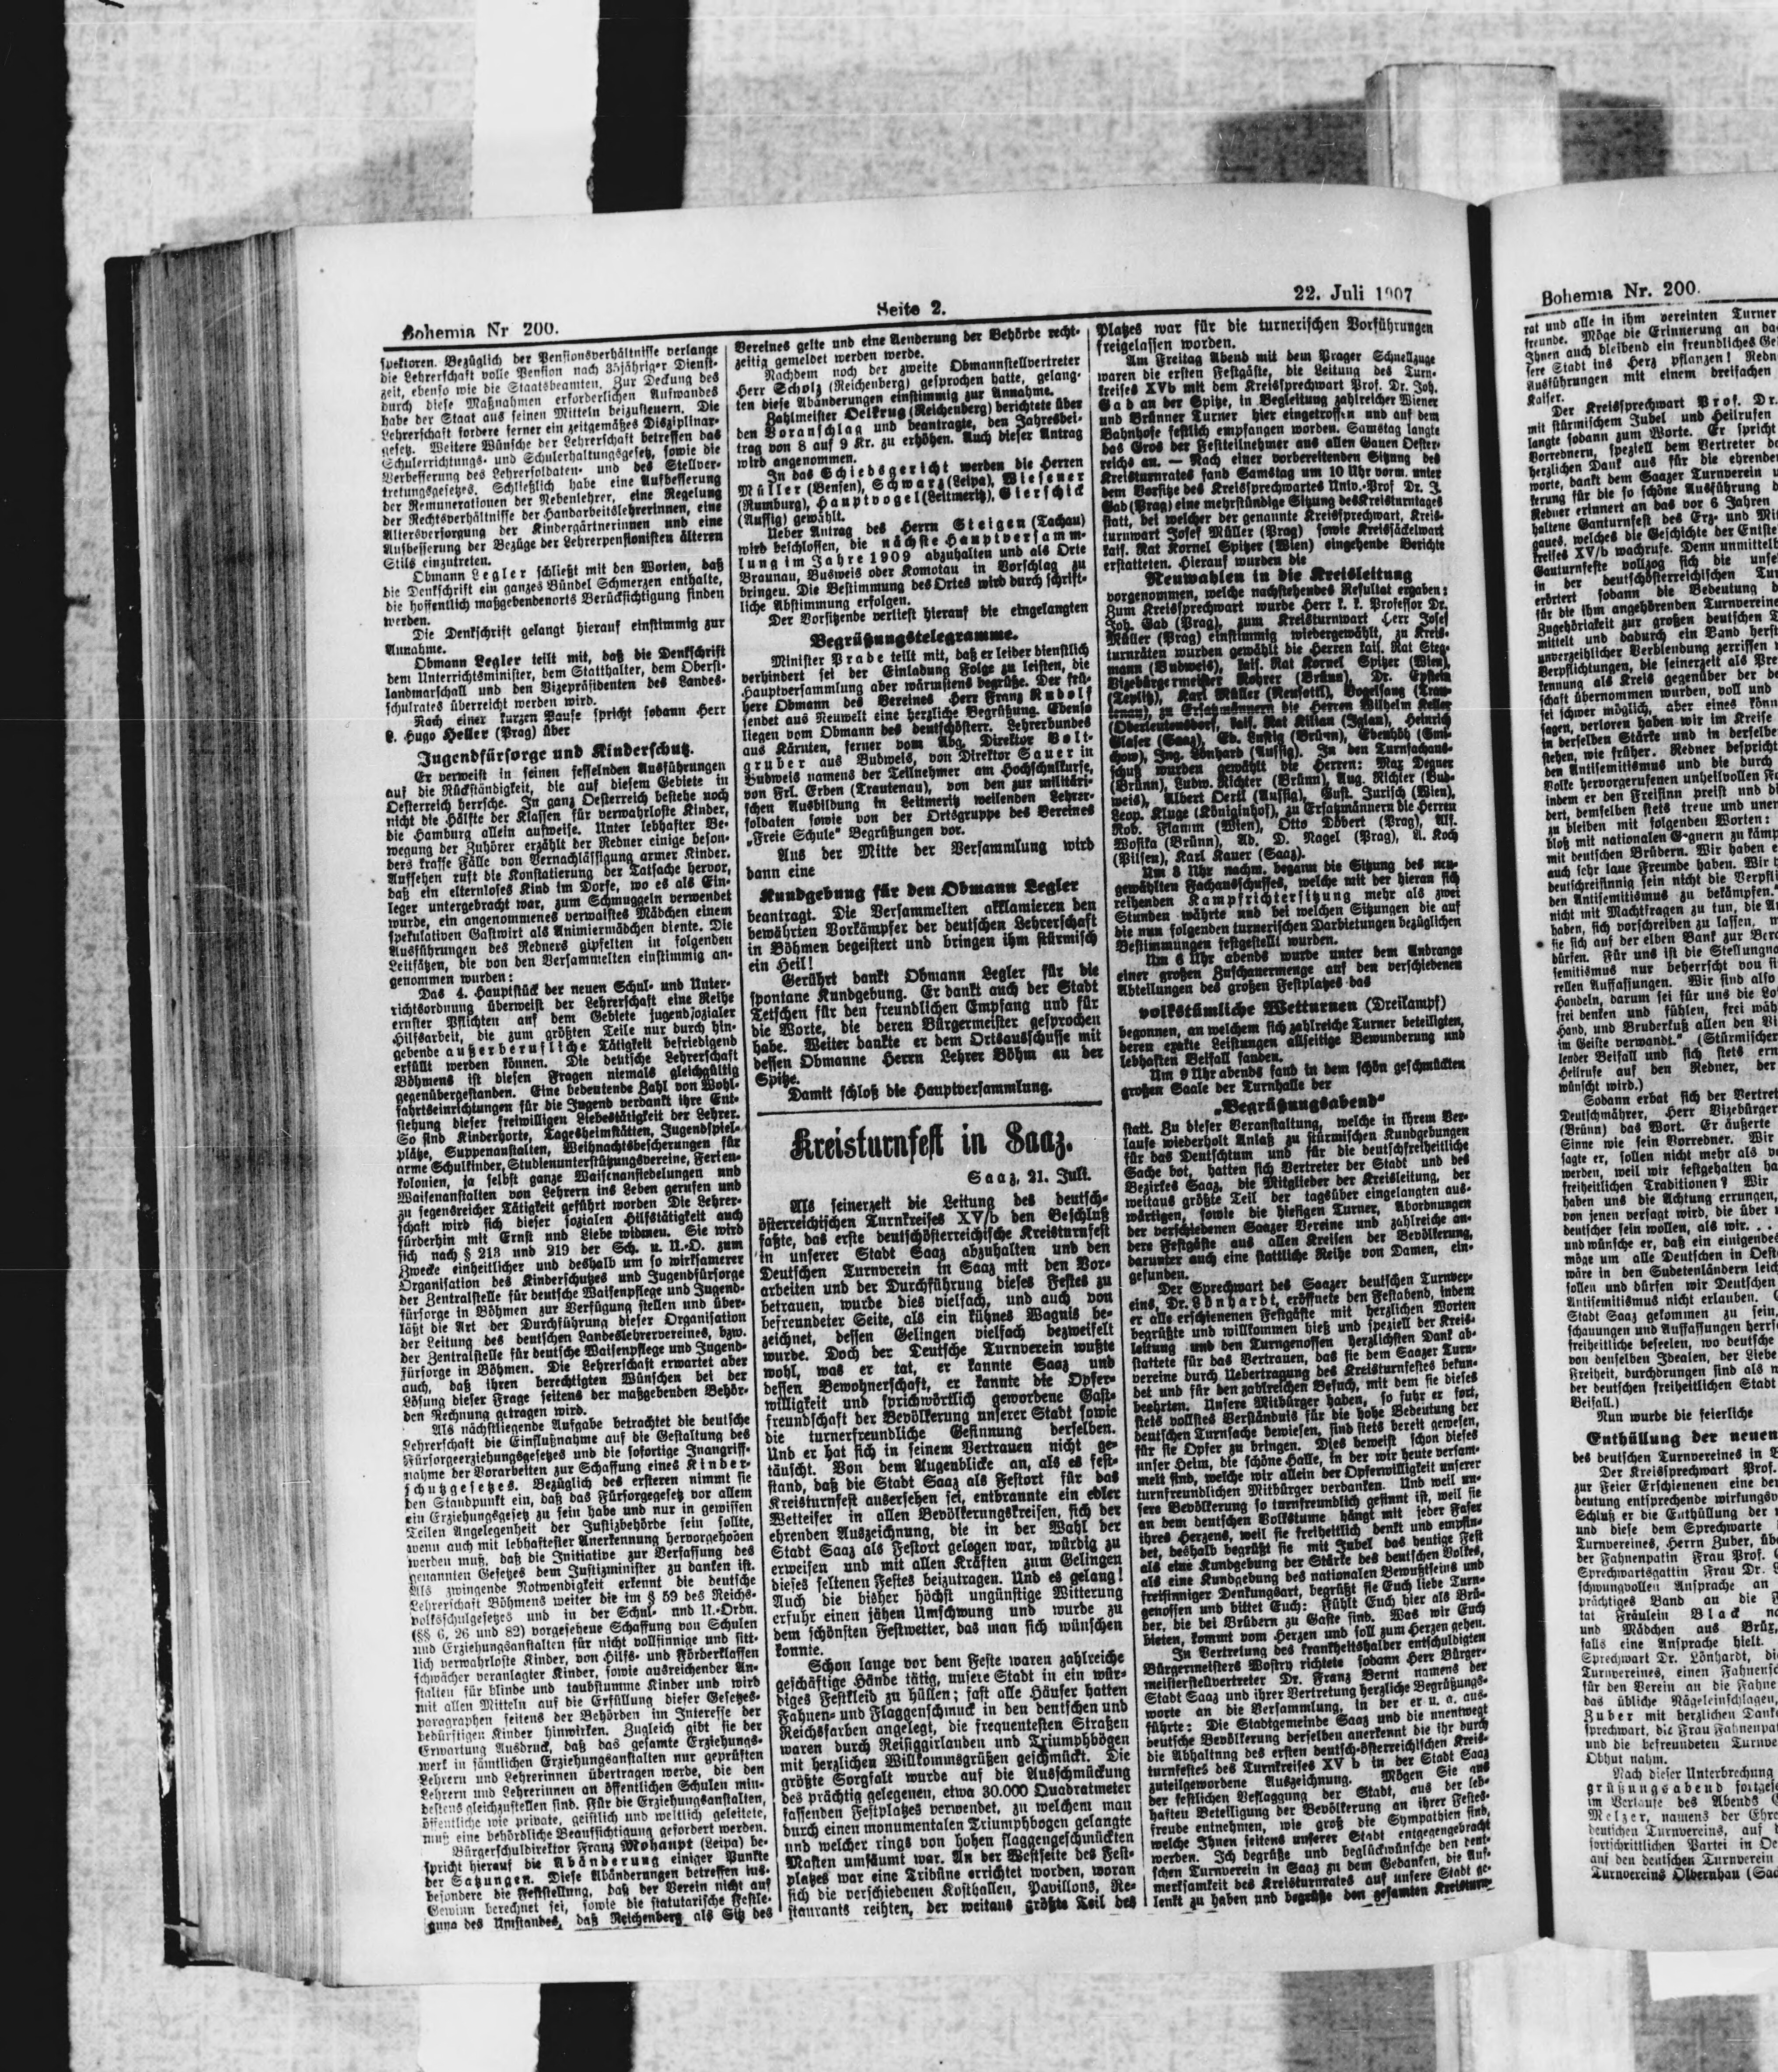 Bohemia Nr 200.
Seite 2.
22. Juli 1907
spektoren. Bezüglich der Pensionsverhältnisse verlange
die Lehrerschaft volle Pension nach 35jähriger Dienst-
zeit, ebenso wie die Staatsbeamten. Zur Deckung des
durch diese Maßnahmen erforderlichen Aufwandes
habe der Staat aus seinen Mitteln beizusteuern. Die
Lehrerschaft fordere ferner ein zeitgemäßes Disziplinar-
gesetz. Weitere Wünsche der Lehrerschaft betreffen das
Schulerrichtungs- und Schulerhaltungsgesetz, sowie die
Verbesserung des Lehrersoldaten- und des Stellver-
tretungsgesetzes. Schließlich habe eine Aufbesserung
der Remunerationen der Nebenlehrer, eine Regelung
der Rechtsverhältnisse der Handarbeitslehrerinnen, eine
Altersversorgung der Kindergärtnerinnen und eine
Aufbesserung der Bezüge der Lehrerpensionisten älteren
Stils einzutreten.
Obmann Legler schließt mit den Worten, daß
die Denkschrift ein ganzes Bündel Schmerzen enthalte,
die hoffentlich maßgebendenorts Berücksichtigung finden
werden.
Die Denkschrift gelangt hierauf einstimmig zur
Annahme.
Obmann Legler teilt mit, daß die Denkschrift
dem Unterrichtsminister, dem Statthalter, dem Oberst-
landmarschall und den Vizepräsidenten des Landes-
schulrates überreicht werden wird.
Nach einer kurzen Pause spricht sodann Herr
L. Hugo Heller (Prag) über
Jugendfürsorge und Kinderschutz.
Er verweist in seinen fesselnden Ausführungen
auf die Rückständigkeit, die auf diesem Gebiete in
Oesterreich herrsche. In ganz Oesterreich bestehe noch
nicht die Hälfte der Klassen für verwahrloste Kinder,
die Hamburg allein aufweise. Unter lebhafter Be-
wegung der Zuhörer erzählt der Redner einige beson-
ders krasse Fälle von Vernachlässigung armer Kinder.
Aufsehen ruft die Konstatierung der Tatsache hervor,
daß ein elternloses Kind im Dorfe, wo es als Ein-
leger untergebracht war, zum Schmuggeln verwendet
wurde, ein angenommenes verwaistes Mädchen einem
spekulativen Gastwirt als Animiermädchen diente. Die
Ausführungen des Redners gipfelten in folgenden
Leitsätzen, die von den Versammelten einstimmig an-
genommen wurden:
Das 4. Hauptstück der neuen Schul- und Unter-
richtsordnung überweist der Lehrerschaft eine Reihe
ernster Pflichten auf dem Gebiete jugendsozialer
Hilfsarbeit, die zum größten Teile nur durch hin-
gebende außerberufliche Tätigkeit befriedigend
erfüllt werden können. Die deutsche Lehrerschaft
Böhmens ist diesen Fragen niemals gleichgültig
gegenübergestanden. Eine bedeutende Zahl von Wohl-
fahrtseinrichtungen für die Jugend verdankt ihre Ent-
stehung dieser freiwilligen Liebestätigkeit der Lehrer.
So sind Kinderhorte, Tagesheimstätten, Jugendspiel-
plätze, Suppenanstalten, Weihnachtsbescherungen für
arme Schulkinder, Studienunterstützungsvereine, Ferien-
kolonien, ja selbst ganze Waisenansiedelungen und
Waisenanstalten von Lehrern ins Leben gerufen und
zu segensreicher Tätigkeit geführt worden Die Lehrer-
schaft wird sich dieser sozialen Hilfstätigkeit auch
fürderhin mit Ernst und Liebe widmen. Sie wird
sich nach § 213 und 219 der Sch. u. U.-O. zum
Zwecke einheitlicher und deshalb um so wirksamerer
Organisation des Kinderschutzes und Jugendfürsorge
der Zentralstelle für deutsche Waisenpflege und Jugend-
fürsorge in Böhmen zur Verfügung stellen und über-
läßt die Art der Durchführung dieser Organisation
der Leitung des deutschen Landeslehrervereines, bzw.
der Zentralstelle für deutsche Waisenpflege und Jugend-
fürsorge in Böhmen. Die Lehrerschaft erwartet aber
auch, daß ihren berechtigten Wünschen bei der
Lösung dieser Frage seitens der maßgebenden Behör-
den Rechnung getragen wird.
Als nächstliegende Aufgabe betrachtet die deutsche
Lehrerschaft die Einflußnahme auf die Gestaltung des
Fürsorgeerziehungsgesetzes und die sofortige Inangriff-
nahme der Vorarbeiten zur Schaffung eines Kinder-
schutzgesetzes. Bezüglich des ersteren nimmt sie
den Standpunkt ein, daß das Fürsorgegesetz vor allem
ein Erziehungsgesetz zu sein habe und nur in gewissen
Teilen Angelegenheit der Justizbehörde sein sollte,
wenn auch mit lebhaftester Anerkennung hervorgehoben
werden muß, daß die Initiative zur Verfassung des
genannten Gesetzes dem Justizminister zu danken ist.
Als zwingende Notwendigkeit erkennt die deutsche
Lehrerschaft Böhmens weiter die im § 59 des Reichs-
volksschulgesetzes und in der Schul- und U.-Ordn.
(§§ 6, 26 und 82) vorgesehene Schaffung von Schulen
und Erziehungsanstalten für nicht vollsinnige und sitt-
lich verwahrloste Kinder, von Hilfs- und Förderklassen
schwächer veranlagter Kinder, sowie ausreichender An-
stalten für blinde und taubstumme Kinder und wird
mit allen Mitteln auf die Erfüllung dieser Gesetzes-
paragraphen seitens der Behörden im Interesse der
bedürftigen Kinder hinwirken. Zugleich gibt sie der
Erwartung Ausdruck, daß das gesamte Erziehungs-
werk in sämtlichen Erziehungsanstalten nur geprüften
Lehrern und Lehrerinnen übertragen werde, die den
Lehrern und Lehrerinnen an öffentlichen Schulen min-
destens gleichzustellen sind. Für die Erziehungsanstalten,
öffentliche wie private, geistlich und weltlich geleitete,
muß eine behördliche Beaufsichtigung gefordert werden.
Bürgerschuldirektor Franz Mohaupt (Leipa) be-
spricht hierauf die Abänderung einiger Punkte
der Satzungen. Diese Abänderungen betreffen ins-
besondere die Feststellung, daß der Verein nicht auf
Gewinn berechnet sei, sowie die statutarische Festle-
gung des Umstandes, daß Reichenberg als Sitz des
Vereines gelte und eine Aenderung der Behörde recht-
zeitig gemeldet werden werde.
Nachdem noch der zweite Obmannstellvertreter
Herr Scholz (Reichenberg) gesprochen hatte, gelang-
ten diese Abänderungen einstimmig zur Annahme.
Zahlmeister Oelkrug (Reichenberg) berichtete über
den Voranschlag und beantragte, den Jahresbei-
trag von 8 auf 9 Kr. zu erhöhen. Auch dieser Antrag
wird angenommen.
In das Schiedsgericht werden die Herren
Müller (Bensen), Schwarz (Leipa), Wiesener
(Rumburg), Hauptvogel (Leitmeritz), Gierschick
(Aussig) gewählt.
Ueber Antrag des Herrn Steigen (Tachau)
wird beschlossen, die nächste Hauptversamm-
lung im Jahre 1909 abzuhalten und als Orte
Braunau, Busweis oder Komotau in Vorschlag zu
bringen. Die Bestimmung des Ortes wird durch schrift-
liche Abstimmung erfolgen.
Der Vorsitzende verliest hierauf die eingelangten
Begrüßungstelegramme.
Minister Prade teilt mit, daß er leider dienstlich
verhindert sei der Einladung Folge zu leisten, die
Hauptversammlung aber wärmstens begrüße. Der frü-
here Obmann des Vereines Herr Franz Rudolf
sendet aus Neuwelt eine herzliche Begrüßung. Ebenso
liegen vom Obmann des deutschösterr. Lehrerbundes
aus Kärnten, ferner vom Abg. Direktor Wolf-
gruber aus Budweis, von Direktor Sauer in
Budweis namens der Teilnehmer am Hochschulkurse,
von Frl. Erben (Trautenau), von den zur militäri-
schen Ausbildung in Leitmeritz weilenden Lehrer-
soldaten sowie von der Ortsgruppe des Vereines
„Freie Schule“ Begrüßungen vor.
Aus der Mitte der Versammlung wird
dann eine
Kundgebung für den Obmann Legler
beantragt. Die Versammelten akklamieren den
bewährten Vorkämpfer der deutschen Lehrerschaft
in Böhmen begeistert und bringen ihm stürmisch
ein Heil!
Gerührt dankt Obmann Legler für die
spontane Kundgebung. Er dankt auch der Stadt
Tetschen für den freundlichen Empfang und für
die Worte, die deren Bürgermeister gesprochen
habe. Weiter dankte er dem Ortsausschusse mit
dessen Obmanne Herrn Lehrer Böhm an der
Spitze.
Damit schloß die Hauptversammlung.
Kreisturnfest in Saaz.
Saaz, 21. Juli.
Als seinerzeit die Leitung des deutsch-
österreichischen Turnkreises XV/b den Beschluß
faßte, das erste deutschösterreichische Kreisturnfest
in unserer Stadt Saaz abzuhalten und den
Deutschen Turnverein in Saaz mit den Vor-
arbeiten und der Durchführung dieses Festes zu
betrauen, wurde dies vielfach, und auch von
befreundeter Seite, als ein kühnes Wagnis be-
zeichnet, dessen Gelingen vielfach bezweifelt
wurde. Doch der Deutsche Turnverein wußte
wohl, was er tat, er kannte Saaz und
dessen Bewohnerschaft, er kannte die Opfer-
willigkeit und sprichwörtlich gewordene Gast-
freundschaft der Bevölkerung unserer Stadt sowie
die turnerfreundliche Gesinnung derselben.
Und er hat sich in seinem Vertrauen nicht ge-
täuscht. Von dem Augenblicke an, als es fest-
stand, daß die Stadt Saaz als Festort für das
Kreisturnfest ausersehen sei, entbrannte ein edler
Wetteifer in allen Bevölkerungskreisen, sich der
ehrenden Auszeichnung, die in der Wahl der
Stadt Saaz als Festort gelegen war, würdig zu
erweisen und mit allen Kräften zum Gelingen
dieses seltenen Festes beizutragen. Und es gelang!
Auch die bisher höchst ungünstige Witterung
erfuhr einen jähen Umschwung und wurde zu
dem schönsten Festwetter, das man sich wünschen
konnte.
Schon lange vor dem Feste waren zahlreiche
geschäftige Hände tätig, unsere Stadt in ein wür-
diges Festkleid zu hüllen; fast alle Häuser hatten
Fahnen- und Flaggenschmuck in den deutschen und
Reichsfarben angelegt, die frequentesten Straßen
waren durch Reisiggirlanden und Triumphbögen
mit herzlichen Willkommsgrüßen geschmückt. Die
größte Sorgfalt wurde auf die Ausschmückung
des prächtig gelegenen, etwa 30.000 Quadratmeter
fassenden Festplatzes verwendet, zu welchem man
durch einen monumentalen Triumphbogen gelangte
und welcher rings von hohen flaggengeschmückten
Masten umsäumt war. An der Westseite des Fest-
platzes war eine Tribüne errichtet worden, woran
sich die verschiedenen Kosthallen, Pavillons, Re-
staurants reihten, der weitaus größte Teil des
Platzes war für die turnerischen Vorführungen
freigelassen worden.
Am Freitag Abend mit dem Prager Schnellzuge
waren die ersten Festgäste, die Leitung des Turn-
kreises XVb mit dem Kreissprechwart Prof. Dr. Joh.
Gad an der Spitze, in Begleitung zahlreicher Wiener
und Brünner Turner hier eingetroffen und auf dem
Bahnhofe festlich empfangen worden. Samstag langte
das Gros der Festteilnehmer aus allen Gauen Oester-
reichs an. — Nach einer vorbereitenden Sitzung des
Kreisturnrates fand Samstag um 10 Uhr vorm. unter
dem Vorsitze des Kreissprechwartes Univ.-Prof Dr. J.
Gad (Prag) eine mehrstündige Sitzung des Kreisturntages
statt, bei welcher der genannte Kreissprechwart, Kreis-
turnwart Josef Müller (Prag) sowie Kreissäckelwart
kais. Rat Kornel Spitzer (Wien) eingehende Berichte
erstatteten. Hierauf wurden die
Neuwahlen in die Kreisleitung
vorgenommen, welche nachstehendes Resultat ergaben:
Zum Kreissprechwart wurde Herr k. k. Professor Dr.
Joh. Gad (Prag), zum Kreisturnwart Herr Josef
Müller (Prag) einstimmig wiedergewählt, zu Kreis-
turnräten wurden gewählt die Herren kais. Rat Steg-
mann (Budweis), kais. Rat Kornel Spitzer (Wien),
Vizebürgermeister Rohrer (Brünn), Dr. Epstein
(Teplitz), Karl Müller (Neusattl), Vogelsang (Trau-
tenau), zu Ersatzmännern die Herren Wilhelm Keller
(Oberleutensdorf, kais. Rat Kilian (Iglau), Heinrich
Glaser (Saaz), Ed. Lustig (Brünn), Ebenhöh
Ing. Lönhard (Aussig). In den Turnsachaus-
schuß wurden gewählt die Herren: Max Degner
(Brünn), Ludw. Richter (Brünn), Aug. Richter (Bud-
weis), Albert Oertl (Aussig), Gust. Jurisch (Wien),
Leop. Kluge (Königinhof), zu Ersatzmännern die Herren
Rob. Flamm (Wien), Otto Döbert (Prag), Alf.
Wofika (Brünn), Ad. D. Nagel (Prag), A. Koch
(Pilsen), Karl Kauer (Saaz).
Um 3 Uhr nachm. begann die Sitzung des neu-
gewählten Fachausschusses, welche mit der hieran sich
reihenden Kampfrichtersitzung mehr als zwei
Stunden währte und bei welchen Sitzungen die auf
die nun folgenden turnerischen Darbietungen bezüglichen
Bestimmungen festgestellt wurden.
Um 6 Uhr abends wurde unter dem Andrange
einer großen Zuschauermenge auf den verschiedenen
Abteilungen des großen Festplatzes das
volkstümliche Wetturnen (Dreikampf)
begonnen, an welchem sich zahlreiche Turner beteiligten,
deren exakte Leistungen allseitige Bewunderung und
lebhaften Beifall fanden.
Um 9 Uhr abends fand in dem schön geschmückten
großen Saale der Turnhalle der
„Begrüßungsabend“
statt. Zu dieser Veranstaltung, welche in ihrem Ver-
laufe wiederholt Anlaß zu stürmischen Kundgebungen
für das Deutschtum und für die deutschfreiheitliche
Sache bot, hatten sich Vertreter der Stadt und des
Bezirkes Saaz, die Mitglieder der Kreisleitung, der
weitaus größte Teil der tagsüber eingelangten aus-
wärtigen, sowie die hiesigen Turner, Abordnungen
der verschiedenen Saazer Vereine und zahlreiche an-
dere Festgäste aus allen Kreisen der Bevölkerung,
darunter auch eine stattliche Reihe von Damen, ein-
gefunden.
Der Sprechwart des Saazer deutschen Turnver-
eins, Dr. Lönhardt, eröffnete den Festabend, indem
er alle erschienenen Festgäste mit herzlichen Worten
begrüßte und willkommen hieß und speziell der Kreis-
leitung und den Turngenossen herzlichsten Dank ab-
stattete für das Vertrauen, das sie dem Saazer Turn-
vereine durch Uebertragung des Kreisturnfestes bekun-
det und für den zahlreichen Besuch, mit dem sie dieses
beehrten. Unsere Mitbürger haben, so fuhr er fort,
stets vollstes Verständnis für die hohe Bedeutung der
deutschen Turnsache bewiesen, sind stets bereit gewesen,
für sie Opfer zu bringen. Dies beweist schon dieses
unser Heim, die schöne Halle, in der wir heute versam-
melt sind, welche wir allein der Opferwilligkeit unserer
turnfreundlichen Mitbürger verdanken. Und weil un-
sere Bevölkerung so turnfreundlich gesinnt ist, weil sie
an dem deutschen Volkstume hängt mit jeder Faser
ihres Herzens, weil sie freiheitlich denkt und empfin-
det, deshalb begrüßt sie mit Jubel das heutige Fest
als eine Kundgebung der Stärke des deutschen Volkes,
als eine Kundgebung des nationalen Bewußtseins und
freisinniger Denkungsart, begrüßt sie Euch liebe Turn-
genossen und bittet Euch: Fühlt Euch hier als Brü-
der, die bei Brüdern zu Gaste sind. Was wir Euch
bieten, kommt vom Herzen und soll zum Herzen gehen.
In Vertretung des krankheitshalber entschuldigten
Bürgermeisters Wostry richtete sodann Herr Bürger-
meisterstellvertreter Dr. Franz Bernt namens der
Stadt Saaz und ihrer Vertretung herzliche Begrüßungs-
worte an die Versammlung, in der er u. a. aus-
führte: Die Stadtgemeinde Saaz und die unentwegt
deutsche Bevölkerung derselben anerkennt die ihr durch
die Abhaltung des ersten deutsch-österreichischen Kreis-
turnfestes des Turnkreises XV b in der Stadt Saaz
zuteilgewordene Auszeichnung. Mögen Sie aus
der festlichen Beflaggung der Stadt, aus der leb-
haften Beteiligung der Bevölkerung an ihrer Festes-
freude entnehmen, wie groß die Sympathien sind,
welche Ihnen seitens unserer Stadt entgegengebracht
werden. Ich begrüße und beglückwünsche den deut-
schen Turnverein in Saaz zu dem Gedanken, die Auf-
merksamkeit des Kreisturnrates auf unsere Stadt ge-
lenkt zu haben und begrüße den gesamten Kreisturn-
Bohemia Nr. 200.
rat und alle in ihm vereinten Turner
freunde. Möge die Erinnerung an
Ihnen auch bleibend ein freundliches
sere Stadt ins Herz pflanzen!
Ausführungen mit einem dreifachen
Kaiser.
Der Kreissprechwart Prof. Dr.
mit stürmischem Jubel und Heilrufen
langte sodann zum Worte. Er spricht
Vorrednern, speziell dem Vertreter
herzlichen Dank aus für die ehrenden
worte, dankt dem Saazer Turnverein
terung für die so schöne Ausführung
Redner erinnert an das vor 6 Jahren
haltene Gauturnfest des Erz- und
gaues, welches die Geschichte der
kreises XV/b wachrufe. Denn
Gauturnfeste vollzog sich die
in der deutschösterreichischen
erörtert sodann die Bedeutung
für die ihm angehörenden Turnvereine
Zugehörigkeit zur großen deutschen
mittelt und dadurch ein Band
unverzeihlicher Verblendung zerrissen
Verpflichtungen, die seinerzeit als
kennung als Kreis gegenüber der
schaft übernommen wurden, voll und
sei schwer möglich, aber eines
sagen, verloren haben wir im Kreise
in derselben Stärke und in derselben
stehen, wie früher. Redner bespricht
den Antisemitismus und die durch
Volke hervorgerufenen unheilvollen
indem er den Freisinn preist und
dert, demselben stets treue und
zu bleiben mit folgenden Worten:
bloß mit nationalen Gegnern zu
mit deutschen Brüdern. Wir haben
auch sehr laue Freunde haben. Wir
deutschfreisinnig sein nicht die
den Antisemitismus zu bekämpfen.
nicht mit Machtfragen zu tun, die
haben, sich vorschreiben zu lassen,
sie sich auf derselben Bank zur
dürfen. Für uns ist die
semitismus nur beherrscht von
rellen Auffassungen. Wir sind also
Handeln, darum sei für uns die
frei denken und fühlen, frei
Hand, und Bruderkuß allen den
im Geiste verwandt.“ (Stürmischer
lender Beifall und sich stets
Heilrufe auf den Redner, der
wünscht wird.)
Sodann erbat sich der
Deutschmährer, Herr
(Brünn) das Wort. Er äußerte
Sinne wie sein Vorredner. Wir
sagte er, sollen nicht mehr als
werden, weil wir festgehalten
freiheitlichen Traditionen? Wir
haben uns die Achtung errungen,
von jenen versagt wird, die über
deutscher sein wollen, als wir. . .
und wünsche er, daß ein einigendes
möge um alle Deutschen in
wäre in den Sudetenländern
sollen und dürfen wir Deutschen
Antisemitismus nicht erlauben.
Stadt Saaz gekommen zu sein,
schauungen und Auffassungen
freiheitliche beseelen, wo deutsche
von denselben Idealen, der Liebe
Freiheit, durchdrungen sind als
der deutschen freiheitlichen Stadt
Beifall.)
Nun wurde die feierliche
Enthüllung der neuen
des deutschen Turnvereines in
Der Kreissprechwart Prof.
zur Feier Erschienenen eine
deutung entsprechende
Schluß er die Enthüllung der
und diese dem Sprechwarte
Turnvereines, Herrn Zuber,
der Fahnenpatin Frau Prof.
Sprechwartsgattin Frau Dr.
schwungvollen Ansprache an
prächtiges Band an die
tat Fräulein Black
und Mädchen aus Brüx,
falls eine Ansprache hielt.
Sprechwart Dr. Lönhardt,
Turnvereines, einen
für den Verein an die Fahne
das übliche Nägeleinschlagen,
Zuber mit herzlichen
sprechwart, die Frau
und die befreundeten
Obhut nahm.
Nach dieser Unterbrechung
grüßungsabend
im Verlaufe des Abends
Melzer, namens der
deutschen Turnvereins, auf
fortschrittlichen Partei in
auf den deutschen Turnverein
Turnvereins Olbernhau